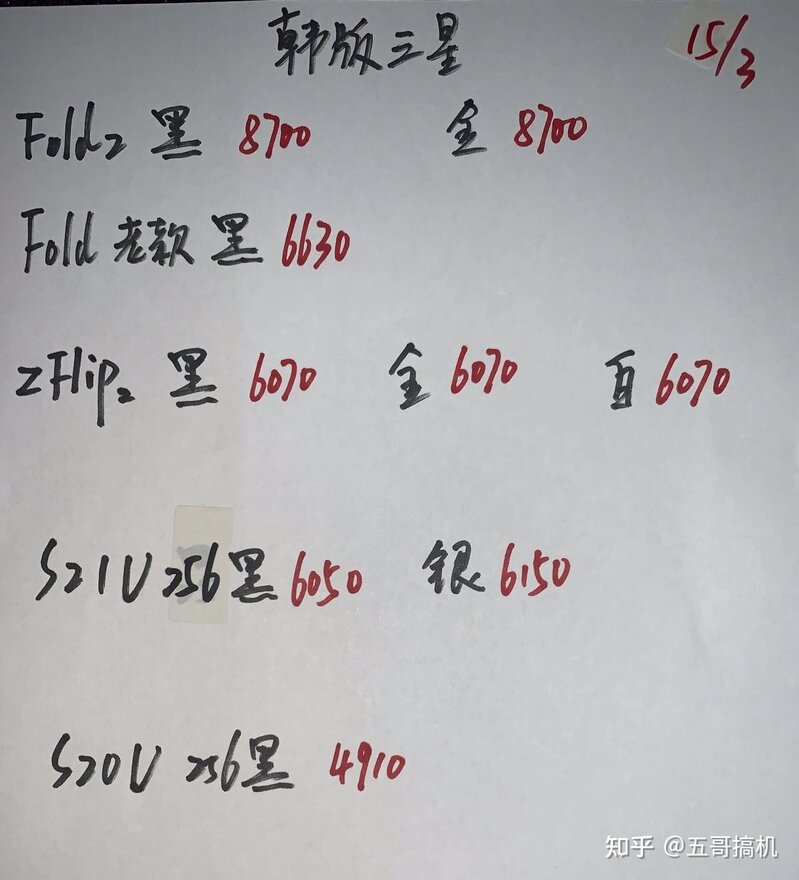 韩版三星 15/3
Fold2 黑 8700 金 8700
Fold 老款 黑 6630
ZFlip2 黑 6070 金 6070 白 6070
S21U 256黑 6050 银 6150
S20U 256黑 4910
知乎 @五哥搞机